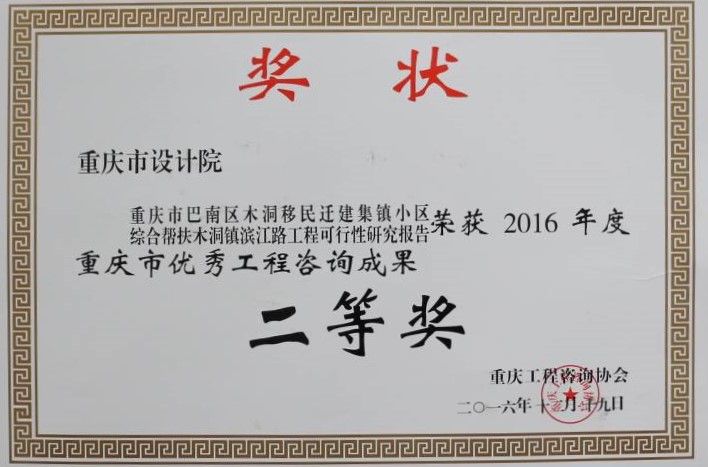 奖 状
重庆市设计院
重庆市巴南区木洞移民迁建集镇小区
综合帮扶木洞镇滨江路工程可行性研究报告 荣获 2016 年度
重庆市优秀工程咨询成果
二等奖
重庆工程咨询协会
二〇一六年十二月十九日